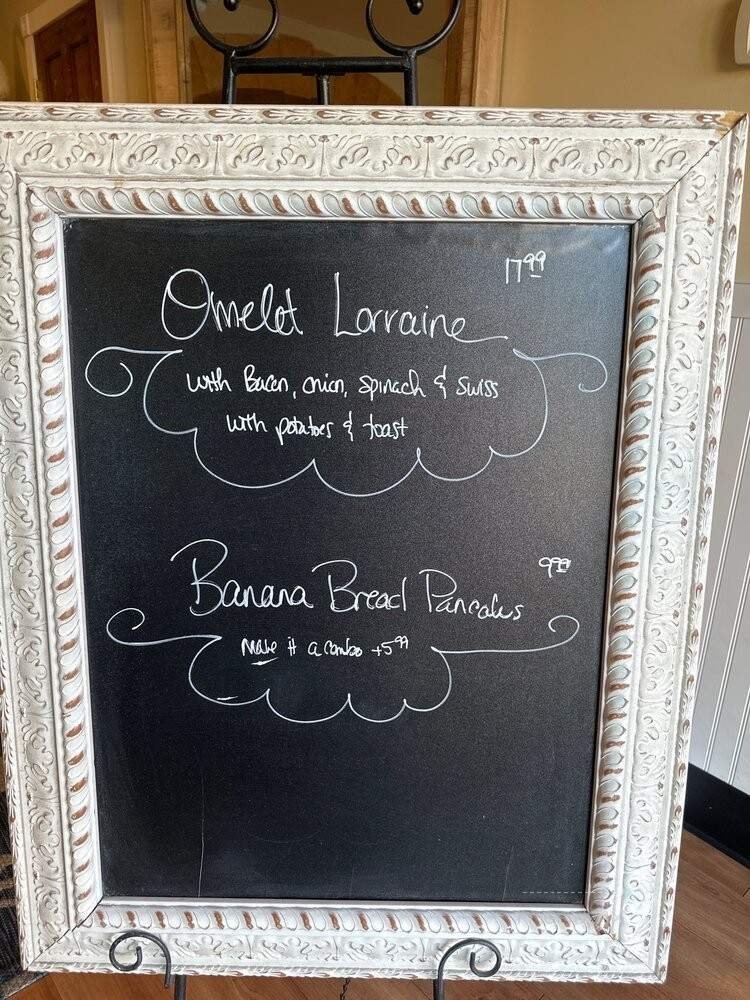 17.99
Omelet Lorraine
with Bacon, onion, spinach & swiss
with potatoes & toast
9.99
Banana Bread Pancakes
make it a combo +5.99